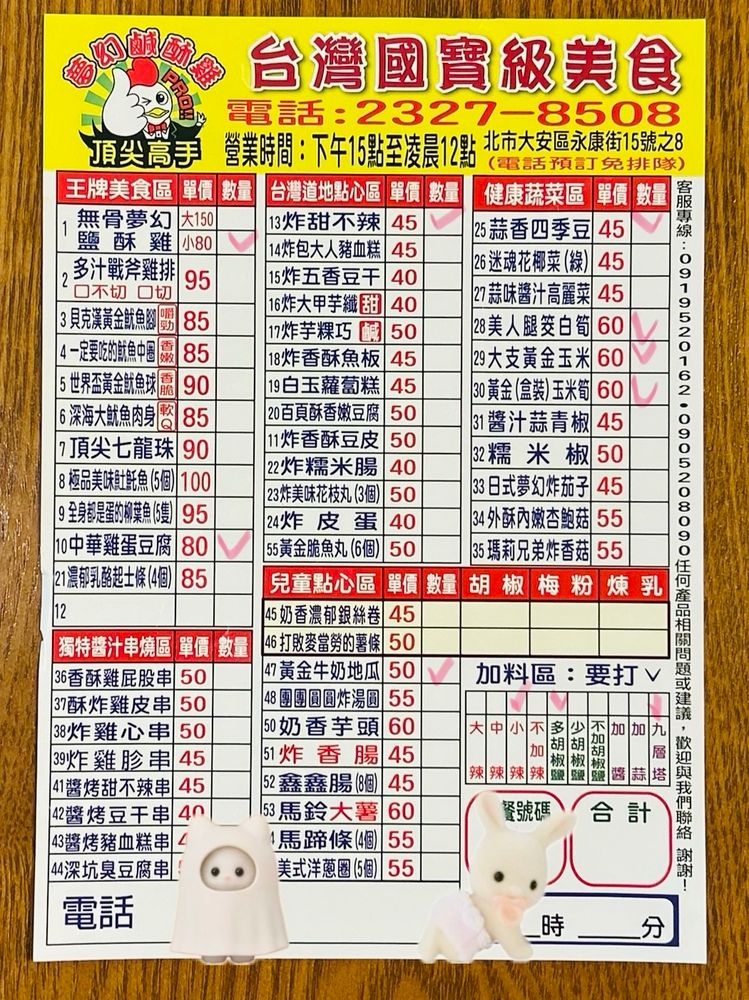 夢幻鹹酥雞
PRO!!
頂尖高手
台灣國寶級美食
電話:2327-8508
營業時間：下午15點至凌晨12點
北市大安區永康街15號之8
(電話預訂免排隊)
王牌美食區 單價 數量
1 無骨夢幻鹽酥雞 大150
小80
2 多汁戰斧雞排 95
□不切 □切
3 貝克漢黃金魷魚腳 嚼勁 85
4 一定要吃的魷魚中圈 香嫩 85
5 世界盃黃金魷魚球 香脆 90
6 深海大魷魚肉身 軟Q 85
7 頂尖七龍珠 90
8 極品美味肚魠魚(5個) 100
9 全身都是蛋的柳葉魚(5隻) 95
10 中華雞蛋豆腐 80
21 濃郁乳酪起士條(4個) 85
12
獨特醬汁串燒區 單價 數量
36 香酥雞屁股串 50
37 酥炸雞皮串 50
38 炸雞心串 50
39 炸雞胗串 45
41 醬烤甜不辣串 45
42 醬烤豆干串 40
43 醬烤豬血糕串
44 深坑臭豆腐串
電話
台灣道地點心區 單價 數量
13 炸甜不辣 45
14 炸包大人豬血糕 45
15 炸五香豆干 40
16 炸大甲芋纖 甜 40
17 炸芋粿巧 鹹 50
18 炸香酥魚板 45
19 白玉蘿蔔糕 45
20 百頁酥香嫩豆腐 50
11 炸香酥豆皮 50
22 炸糯米腸 40
23 炸美味花枝丸(3個) 50
24 炸皮蛋 40
55 黃金脆魚丸(6個) 50
健康蔬菜區 單價 數量
25 蒜香四季豆 45
26 迷魂花椰菜(綠) 45
27 蒜味醬汁高麗菜 45
28 美人腿筊白筍 60
29 大支黃金玉米 60
30 黃金(盒裝)玉米筍 60
31 醬汁蒜青椒 45
32 糯米椒 50
33 日式夢幻炸茄子 45
34 外酥內嫩杏鮑菇 55
35 瑪莉兄弟炸香菇 55
兒童點心區 單價 數量 胡椒 梅粉 煉乳
45 奶香濃郁銀絲卷 45
46 打敗麥當勞的薯條 50
47 黃金牛奶地瓜 50
48 團團圓圓炸湯圓 55
50 奶香芋頭 60
51 炸香腸 45
52 鑫鑫腸(8個) 45
53 馬鈴大薯 60
馬蹄條(4個) 55
美式洋蔥圈(5個) 55
加料區：要打✓
大辣
中辣
小辣
不加辣
多胡椒鹽
少胡椒鹽
不加胡椒鹽
加醬
加蒜
九層塔
餐號碼
合計
時 分
客服專線：0919520162•0905208090任何產品相關問題或建議，歡迎與我們聯絡 謝謝！